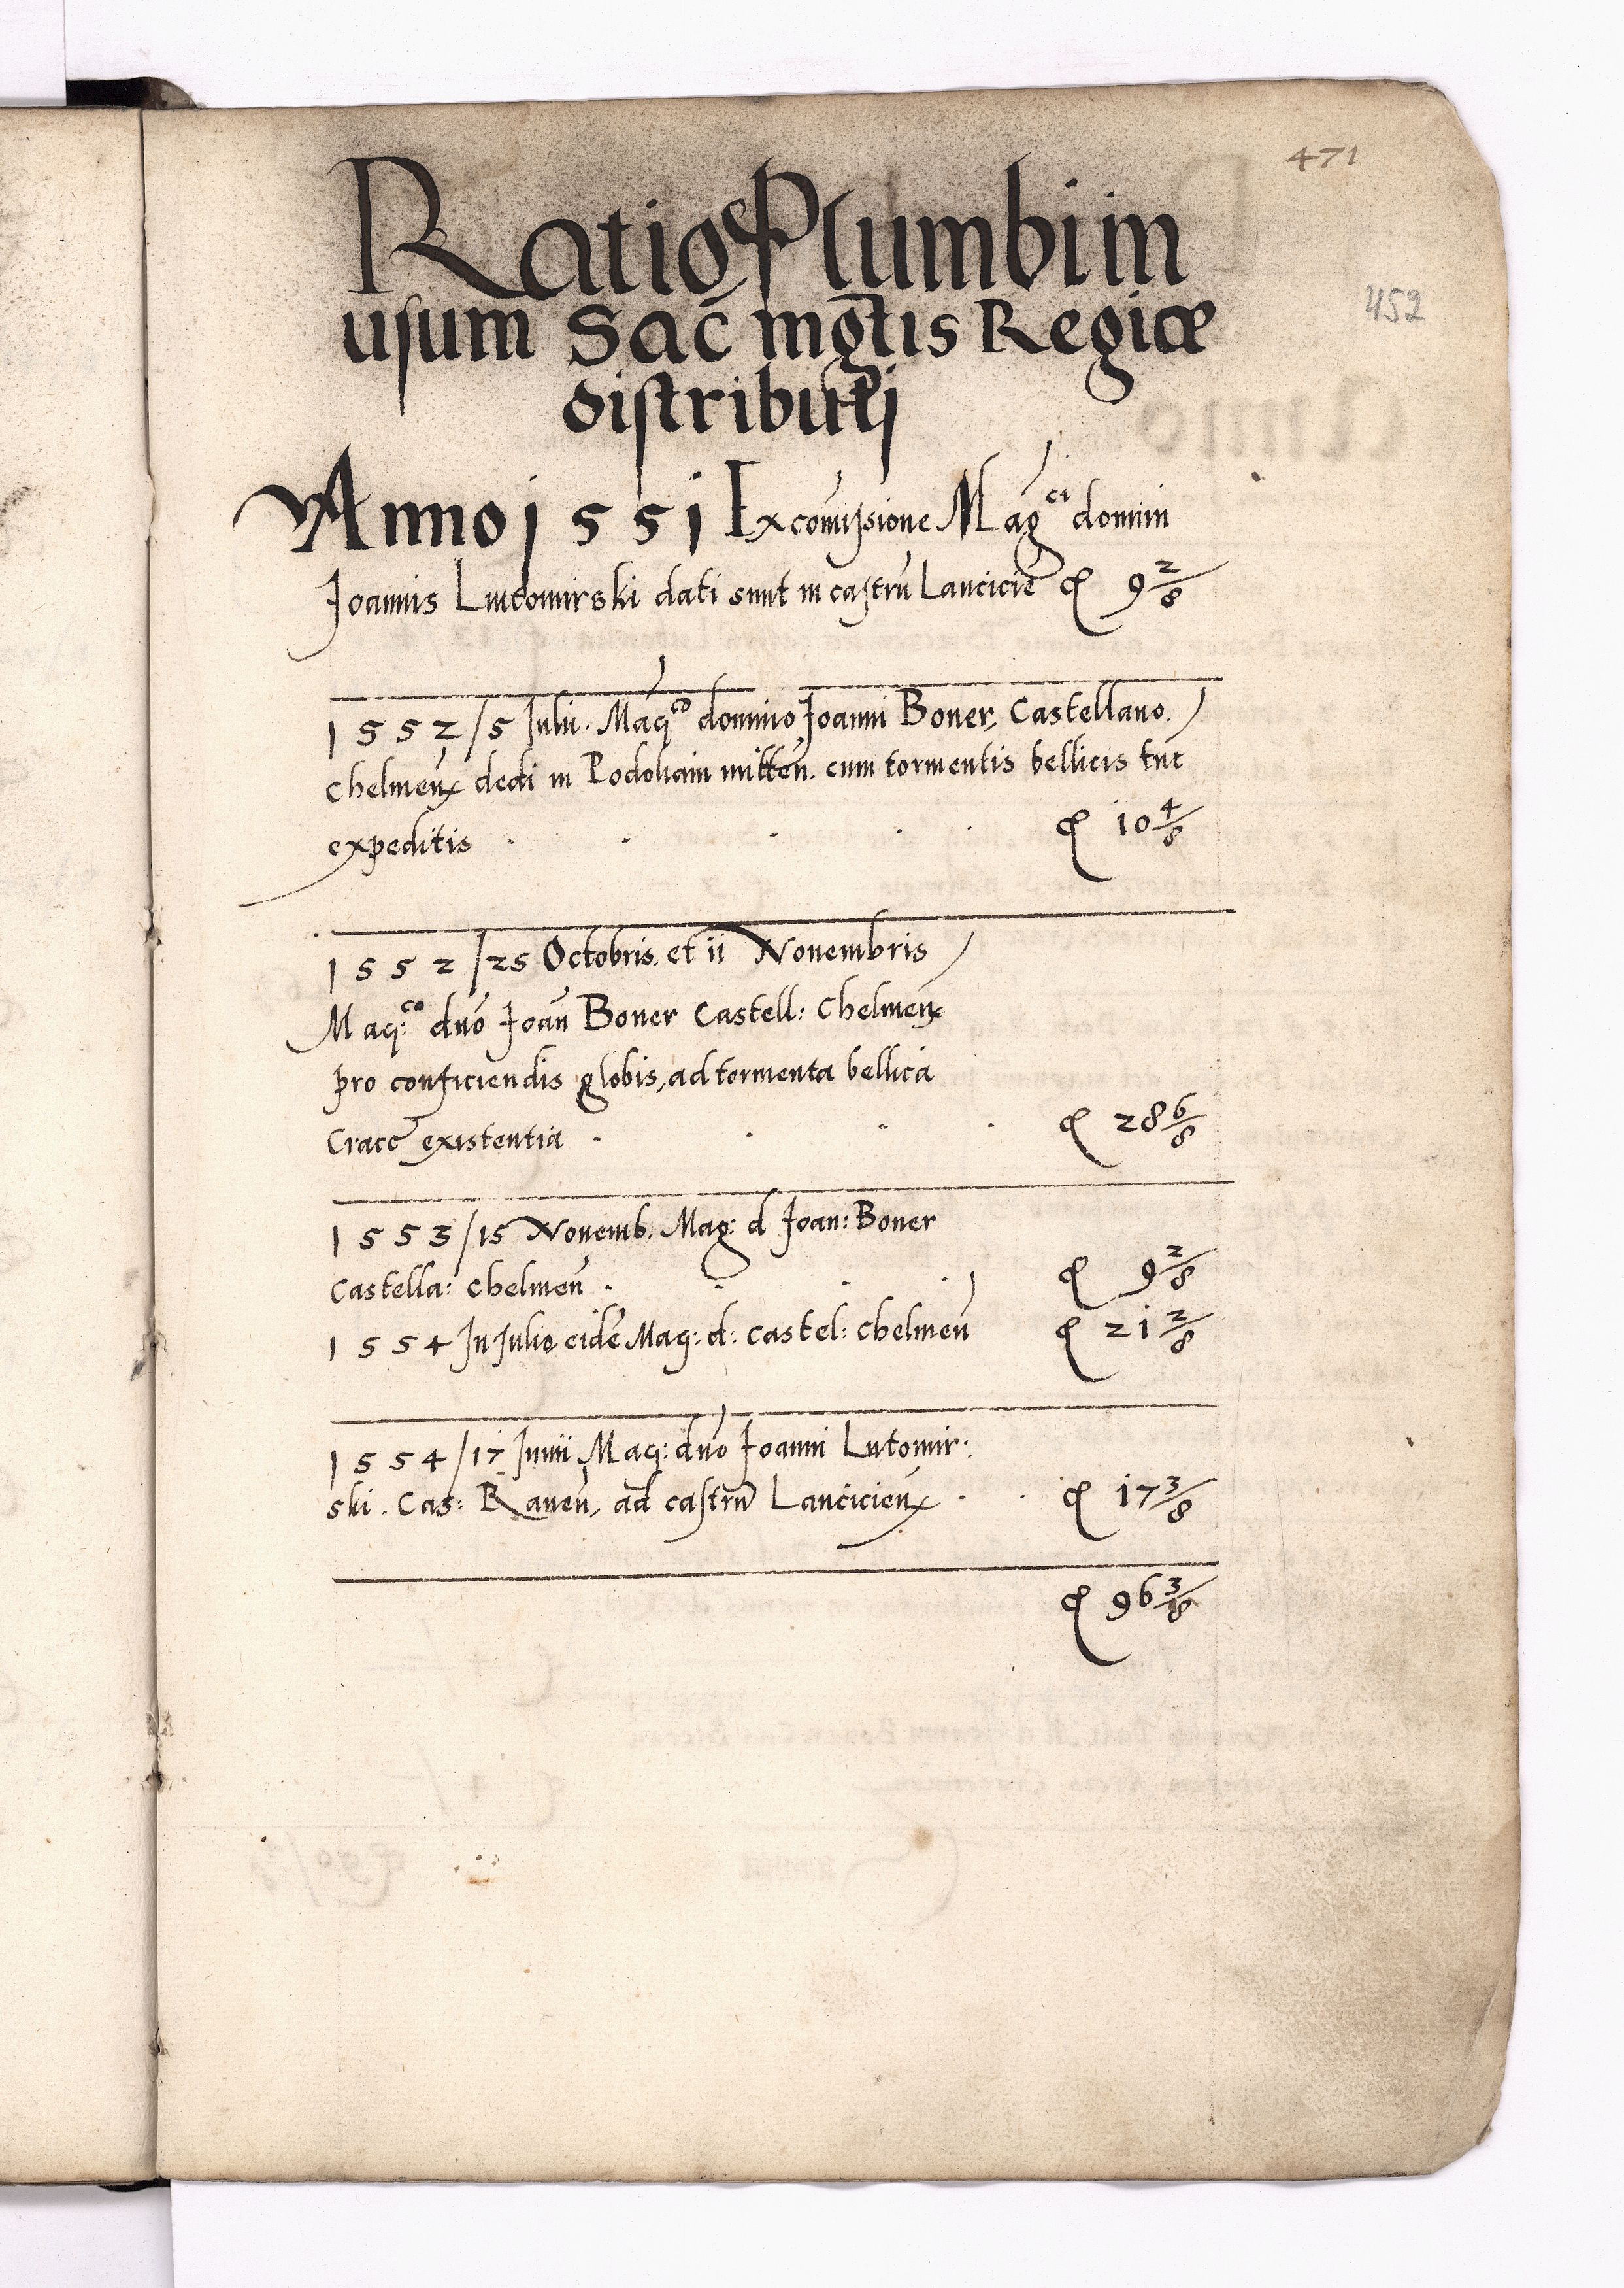 471
Ratio Plumbi in
452
usum Sac̄ mgt̄is Regiæ
distributi
Anno 1551 Ex com̄issione Mag^ci domini
Joannis Lutomirski dati sunt in castrū Lancicie ȼ 9 2/8
1552/5 Julii. Mag^co domino Joanni Boner, Castellano
Chelmen̄ dedi in Podoliam mitten̄. cum tormentis bellicis tūc
expeditis . . . . . ȼ 10 4/8
1552/25 Octobris. et ii Novembris
Mag:^co dn̄o Joan̄ Boner Castell: Chelmen̄
pro conficiendis globis, ad tormenta bellica
Cracc̄ existentia . . . . ȼ 28 6/8
1553/15 Novemb. Mag: d Joan: Boner
Castella: Chelmen̄ . . . . ȼ 9 2/8
1554 In Julio eidē Mag: d: Castel: Chelmen̄ ȼ 21 2/8
1554/17 Junii Mag: dn̄o Joanni Lutomir:
ski. Cas: Raven̄, ad castrū Lancicien̄ . . ȼ 17 3/8
ȼ 96 3/8